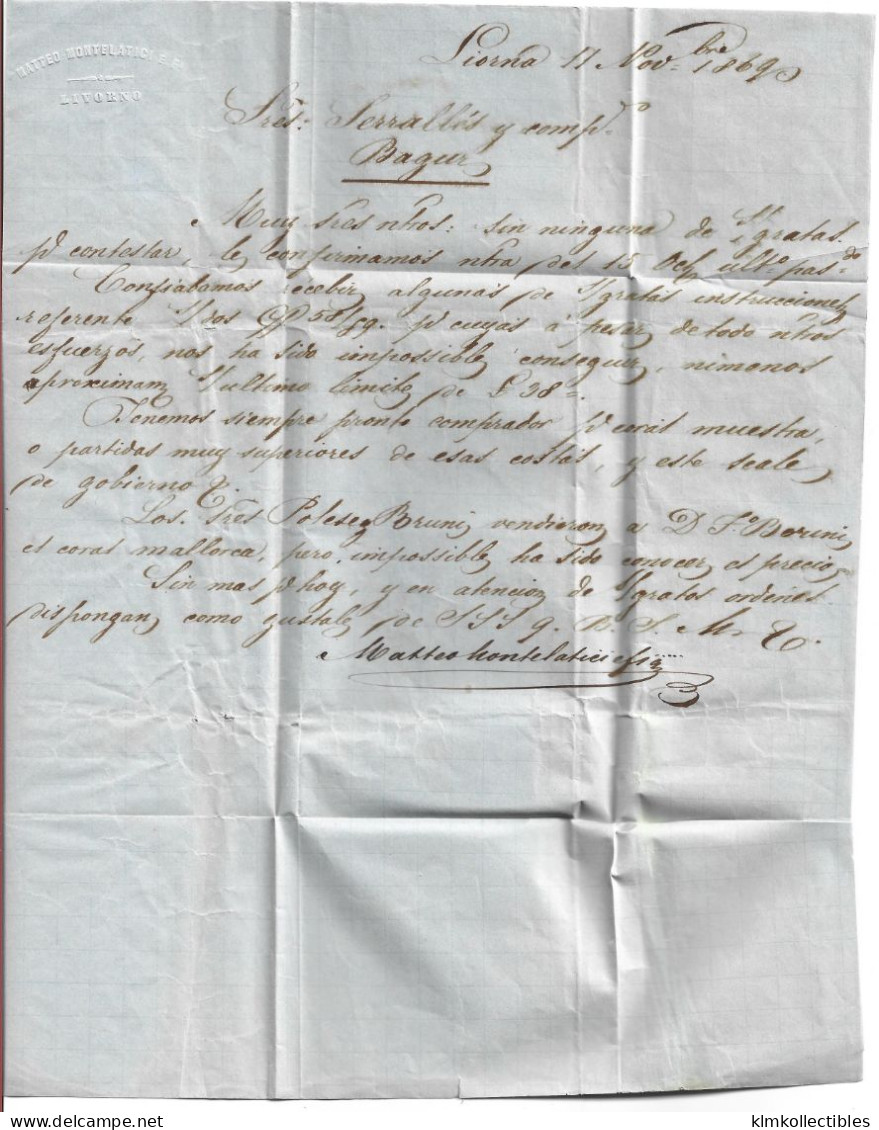 MATTEO MONTELATICI E F.
LIVORNO
Liorna 17 Nov.bre 1869
Sres: Serrallés y compa.
Bagur
Muy Sres ntros: sin ninguna de S/ gratas
pa contestar, les confirmamos ntra del 15 Oct. ulto. pasdo
Confiabamos recebir algunas de S/ gratas instrucciones
referente S/ dos 58/59. pa cuyas á pesar de todo ntros
esfuerzos, nos ha sido impossible conseguir, nimanos
aproximam S/ ultimo limite de £ 38=.
Tenemos siempre pronto comprador pa coral muestra,
o partidas muy superiores de esas costas, y este seale
de gobierno &.
Los Sres Polese y Bruni vendieron a D Fo. Borini
el coral mallorca, pero impossible ha sido conocer el precio
Sin mas pr hoy, y en atencion de S/ gratos ordenes
dispongan como gustale de SSS q. B. S. M. &.
Matteo Montelatici e fi
klmkollectibles